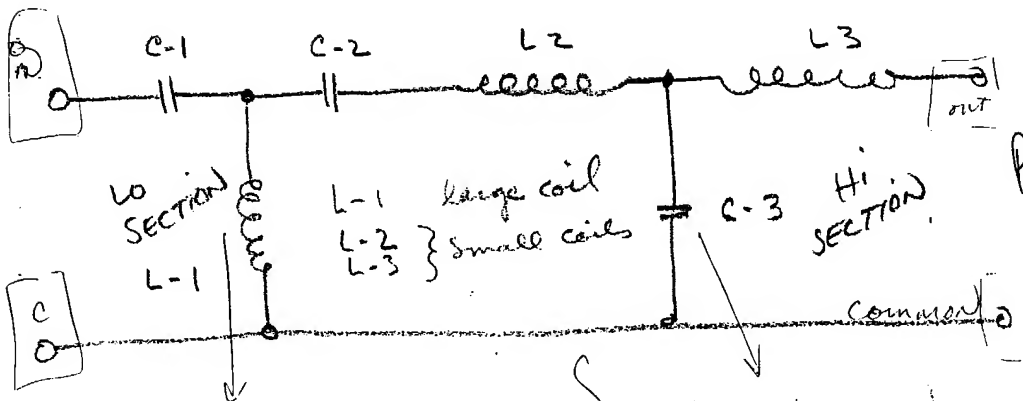 in
C-1
C-2
L2
L3
out
LO
SECTION
L-1
L-1 large coil
L-2 } small coils
L-3
C-3
Hi
SECTION
C
common